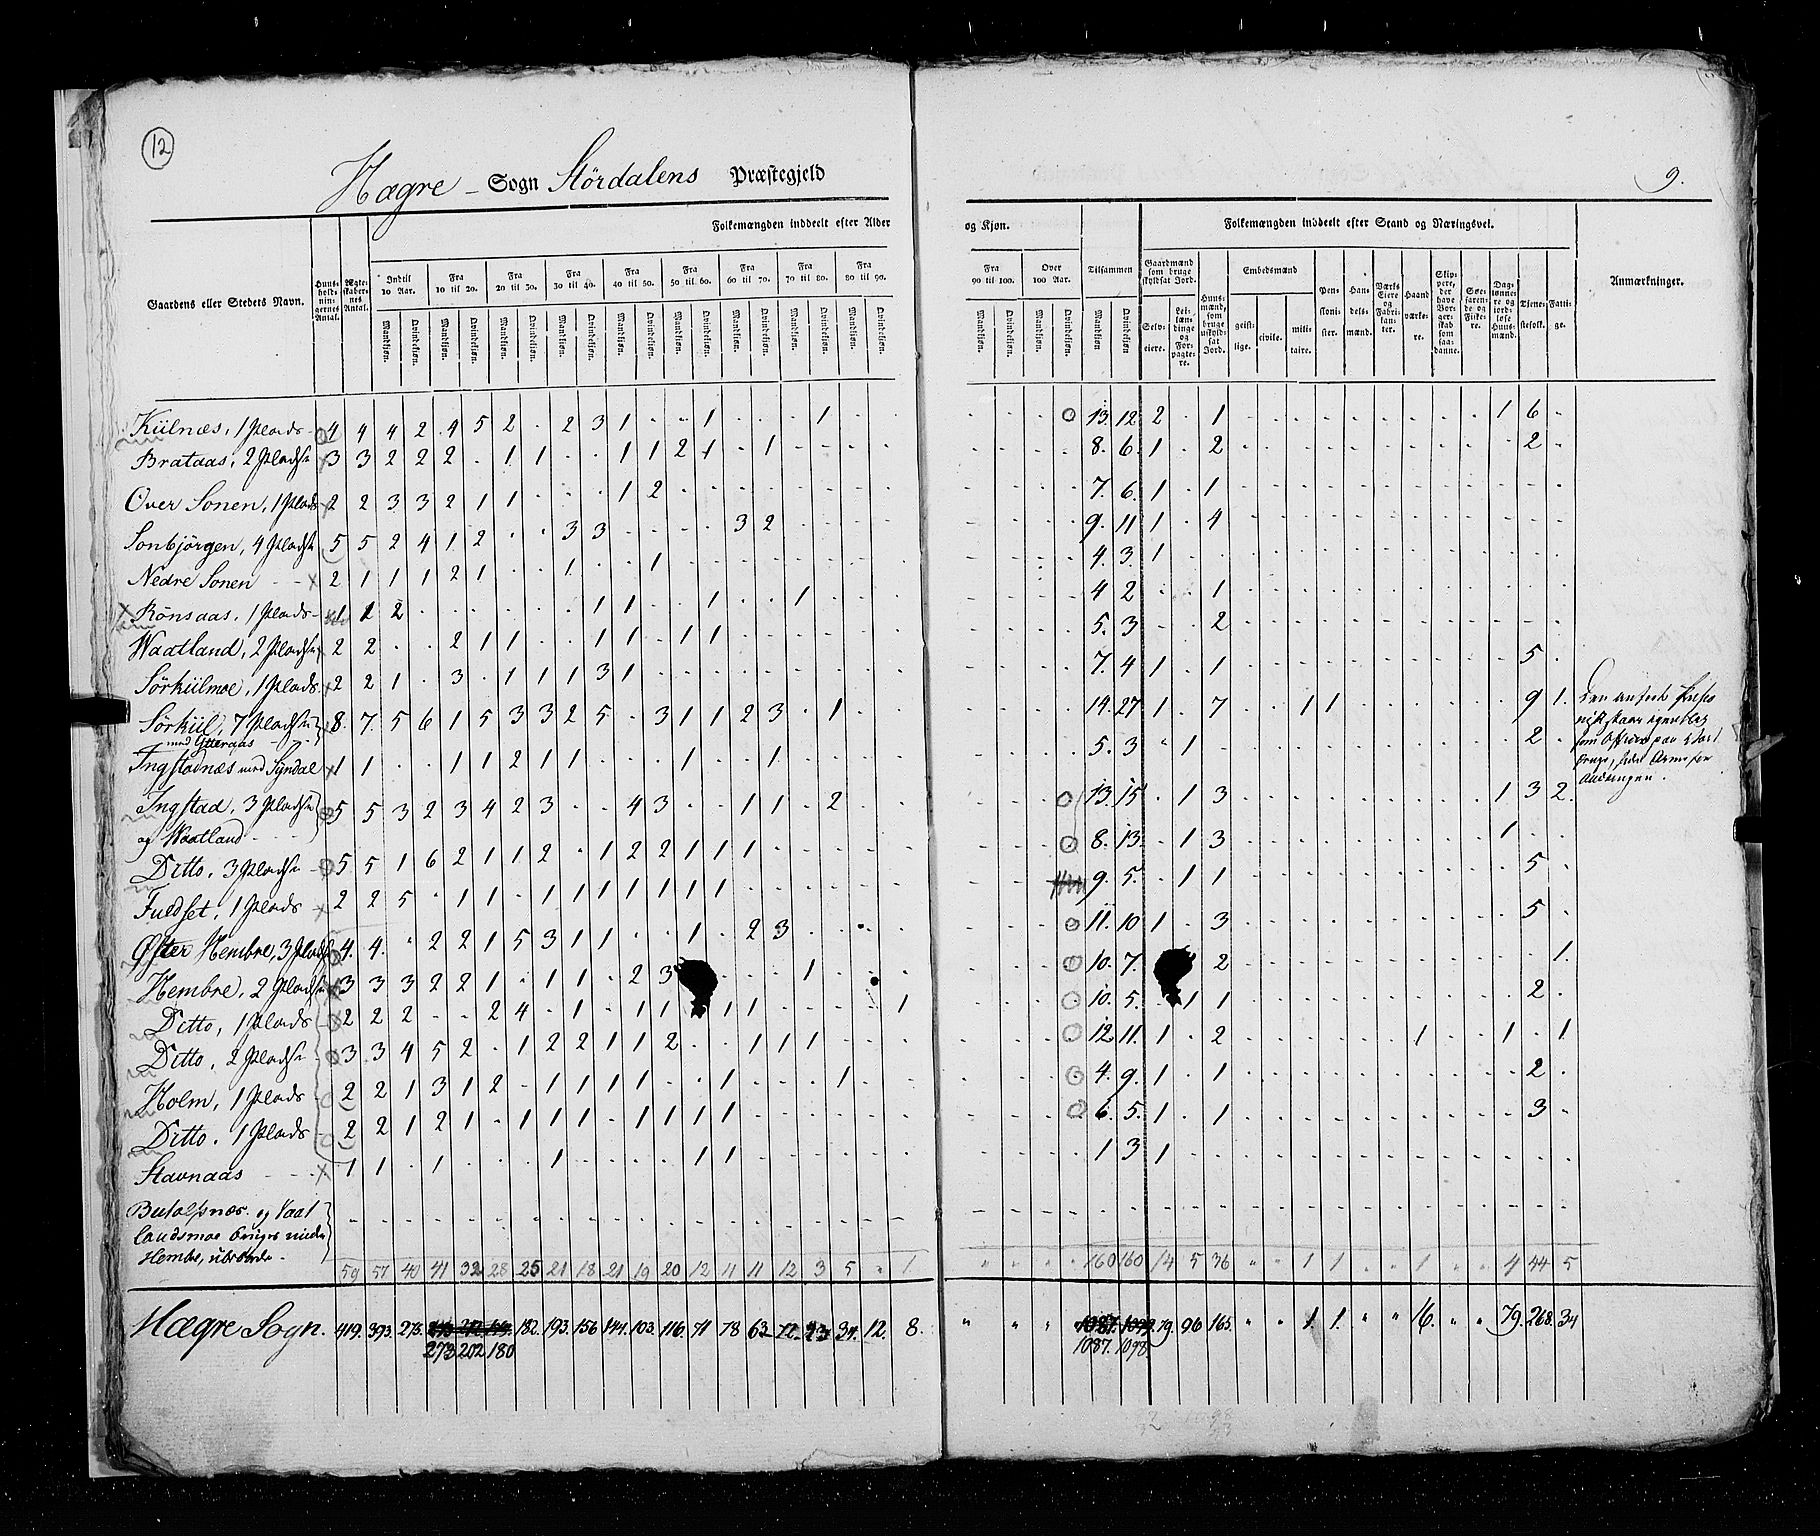 12
Hægre - Sogn Størdalens Præstegjeld
9.
Gaardens eller Stedets Navn.
Huusholdningernes Antal.
Ægteskabernes Antal.
Folkemængden inddeelt efter Alder og Kjøn.
Indtil 10 Aar.
Fra 10 til 20.
Fra 20 til 30.
Fra 30 til 40.
Fra 40 til 50.
Fra 50 til 60.
Fra 60 til 70.
Fra 70 til 80.
Fra 80 til 90.
Fra 90 til 100.
Over 100 Aar.
Tilsammen
Mandkjøn. Qvindekjøn.
Folkemængden inddeelt efter Stand og Næringsvei.
Gaardmænd som bruge skyldsat Jord.
Selveiere.
Leilændinge og Forpagtere.
Huusmænd, som bruge uskyldsat Jord.
Embedsmænd
geistlige. civile. militaire.
Pensionister.
Handelsmænd.
Værks Eiere og Fabrikanter.
Haandværkere.
Skippere, der have Borgerskab som saadanne.
Søefarende og Fiskere.
Daglønnere og jordløse Huusmænd.
Tjenestefolk.
Fattige.
Anmærkninger.
Kiilnæs, 1 Plads 4 4 4 2 4 5 2 . 2 3 1 . . 1 . . . 1 . . 13. 12 2 . 1 1 6
Brataas, 2 Pladse 3 3 2 2 2 . 1 1 . . 1 1 2 1 . 1 8. 6. 1 . 2 2
Over Sonen, 1 Plads 2 2 3 3 2 1 1 . . . 1 2 7. 6. 1 . 1
Sonbjörgen, 4 Pladse 5 5 2 4 1 2 . . 3 3 . . . . 3 2 9. 11 1 . 4
Nedre Sonen 2 1 1 1 2 1 . . 1 . . 1 4. 3. 1
Rönsaas, 1 Plads 1 1 2 . . . . . . 1 1 . . 1 . . 1 4 2 . . 1
Waatland, 2 Pladse 2 2 . . 2 1 1 . . 1 1 . 1 1 5. 3 . . 2
Sörkiilmoe, 1 Plads 2 2 1 . 3 . 1 1 1 3 1 7. 4 1 . 1 5
Sörkiil, 7 Pladse 8. 7. 5 6 1 5 3 3 2 5 . 3 1 1 2 3 . 1 14. 27 1 . 7 1 1 9 1.
med Ytteraas
Ingstadnæs med Syndal 1 1 . . 1 1 2 1 1 . . . 1 . . 1 5. 3 . 1 2
Ingstad, 3 Pladse 5 5 3 2 3 4 2 3 . . 4 3 . . 1 1 . 2 13. 15 . 1 3 1 3 2.
og Waatland
Ditto, 3 Pladse 5. 5 1 6 2 1 1 2 . 1 2 2 1 1 1 8. 13. . 1 3 1
Fuldset, 1 Plads 2 2 5 . 1 1 . 1 1 1 1 1 1 1 9. 5. . 1 1 5
Øfter Hembre, 3 Pladse 4. 4. . 2 2 1 5 3 1 1 . . 1 . 2 3 11. 10 1 . 3 5
Hembre, 2 Pladse 3 3 3 2 2 1 . 1 1 . 2 3 . . . 1 10. 7. 2 1.
Ditto, 1 Plads 2 2 2 . . 2 4 . 1 . 1 1 1 1 1 10. 5. . 1 1 2
Ditto, 2 Pladse 3 3 4 5 2 . 1 2 2 1 1 2 . . 1 1 1 12 11. 1 . 2 1 1 . 1
Holm, 1 Plads 2 2 1 3 1 2 . 1 1 1 1 . . 1 . . . 1 4. 9. 1 . 1 2
Ditto. 1 Plads 2 2 1 2 1 . 1 1 1 . 1 1 1 1 6. 5. 1 . 1 3
Stavnaas 1 1 . 1 . . . 1 . . . . 1 1 1 3 1
59 57 40 41 32 28 25 21 18 21 19 20 12 11 11 12 3 5 . 1 160 160 14 5 36 1 1 1 4 44 5
Hægre Sogn. 419. 393. 273. 182. 193. 156 141. 103. 116. 71 78 63. 72. 23. 34. 12. 8. 79. 96 165. 1. 1. 16. 79. 268. 34
273 202 180 1087. 1098